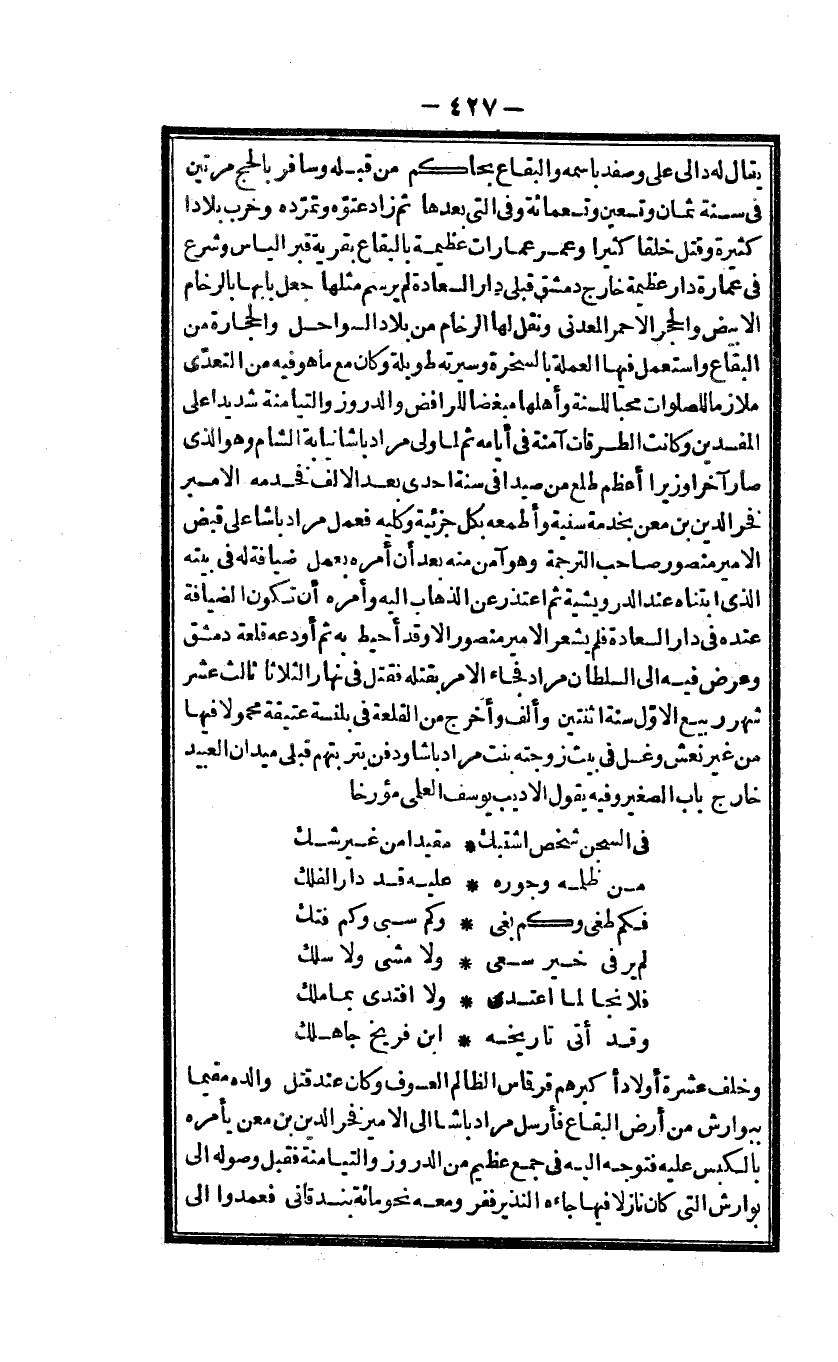 — ٤٢٧ —
يقال له دالى على وصفد باسمه والبقاع بحاكم من قبله وسافر بالحج مرتين
فى سنة ثمان وتسعين وتسعمائة وفى التى بعدها ثم زاد عتوّه وتمرّده وخرب بلادا
كثيرة وقتل خلقا كثيرا وعمر عمارات عظيمة بالبقاع بقرية قبر الياس وشرع
فى عمارة دار عظيمة خارج دمشق قبلى دار السعادة لم يرسم مثلها جعل بابها بالرخام
الابيض والحجر الاحمر المعدنى ونقل لها الرخام من بلاد السواحل والحجارة من
البقاع واستعمل فيها العملة بالسخرة وسيرته طويلة وكان مع ما هو فيه من التعدّى
ملازما للصلوات محبا للسنة وأهلها مبغضا للرافض والدروز والتيامنة شديدا على
المفسدين وكانت الطرقات آمنة فى أيامه ثم لما ولى مراد باشا نيابة الشام وهو الذى
صار آخرا وزيرا أعظم طلع من صيدا فى سنة احدى بعد الالف فخدمه الامير
فخر الدين بن معن بخدمة سنية وأطمعه بكل جزئية وكليه فعمل مراد باشا على قبض
الامير منصور صاحب الترجمة وهو آمن منه بعد أن أمره بعمل ضيافة له فى بيته
الذى ابتناه عند الدرويشية ثم اعتذر عن الذهاب اليه وأمره أن تكون الضيافة
عنده فى دار السعادة فلم يشعر الامير منصور الا وقد أحيط به ثم أودعه قلعة دمشق
وعرض فيه الى السلطان مراد فجاء الامر بقتله فقتل فى نهار الثلاثا ثالث عشر
شهر ربيع الاوّل سنة اثنتين وألف وأخرج من القلعة فى بلنسة عتيقة محمولا فيها
من غير نعش وغسل فى بيت زوجته بنت مراد باشا ودفن بتربتهم قبلى ميدان العبيد
خارج باب الصغير وفيه يقول الاديب يوسف العلمى مؤرخا
فى السجن شخص اشتبك * مقيدا من غير شك
من ظلمه وجوره * عليه قد دار الفلك
فكم طغى وكم بغى * وكم سبى وكم فتك
لم ير فى خير سعى * ولا مشى ولا سلك
فلا نجا لما اعتدى * ولا افتدى بما ملك
وقد أتى تاريخه * ابن فريخ جا هلك
وخلف عشرة أولاد أكبرهم قرقاس الظالم العسوف وكان عند قتل والده مقيما
ببوارش من أرض البقاع فأرسل مراد باشا الى الامير فخر الدين بن معن يأمره
بالكبس عليه فتوجه اليه فى جمع عظيم من الدروز والتيامنة فقبل وصوله الى
بوارش التى كان نازلا فيها جاءه النذير ففر ومعه نحو مائة بندقانى فعمدوا الى